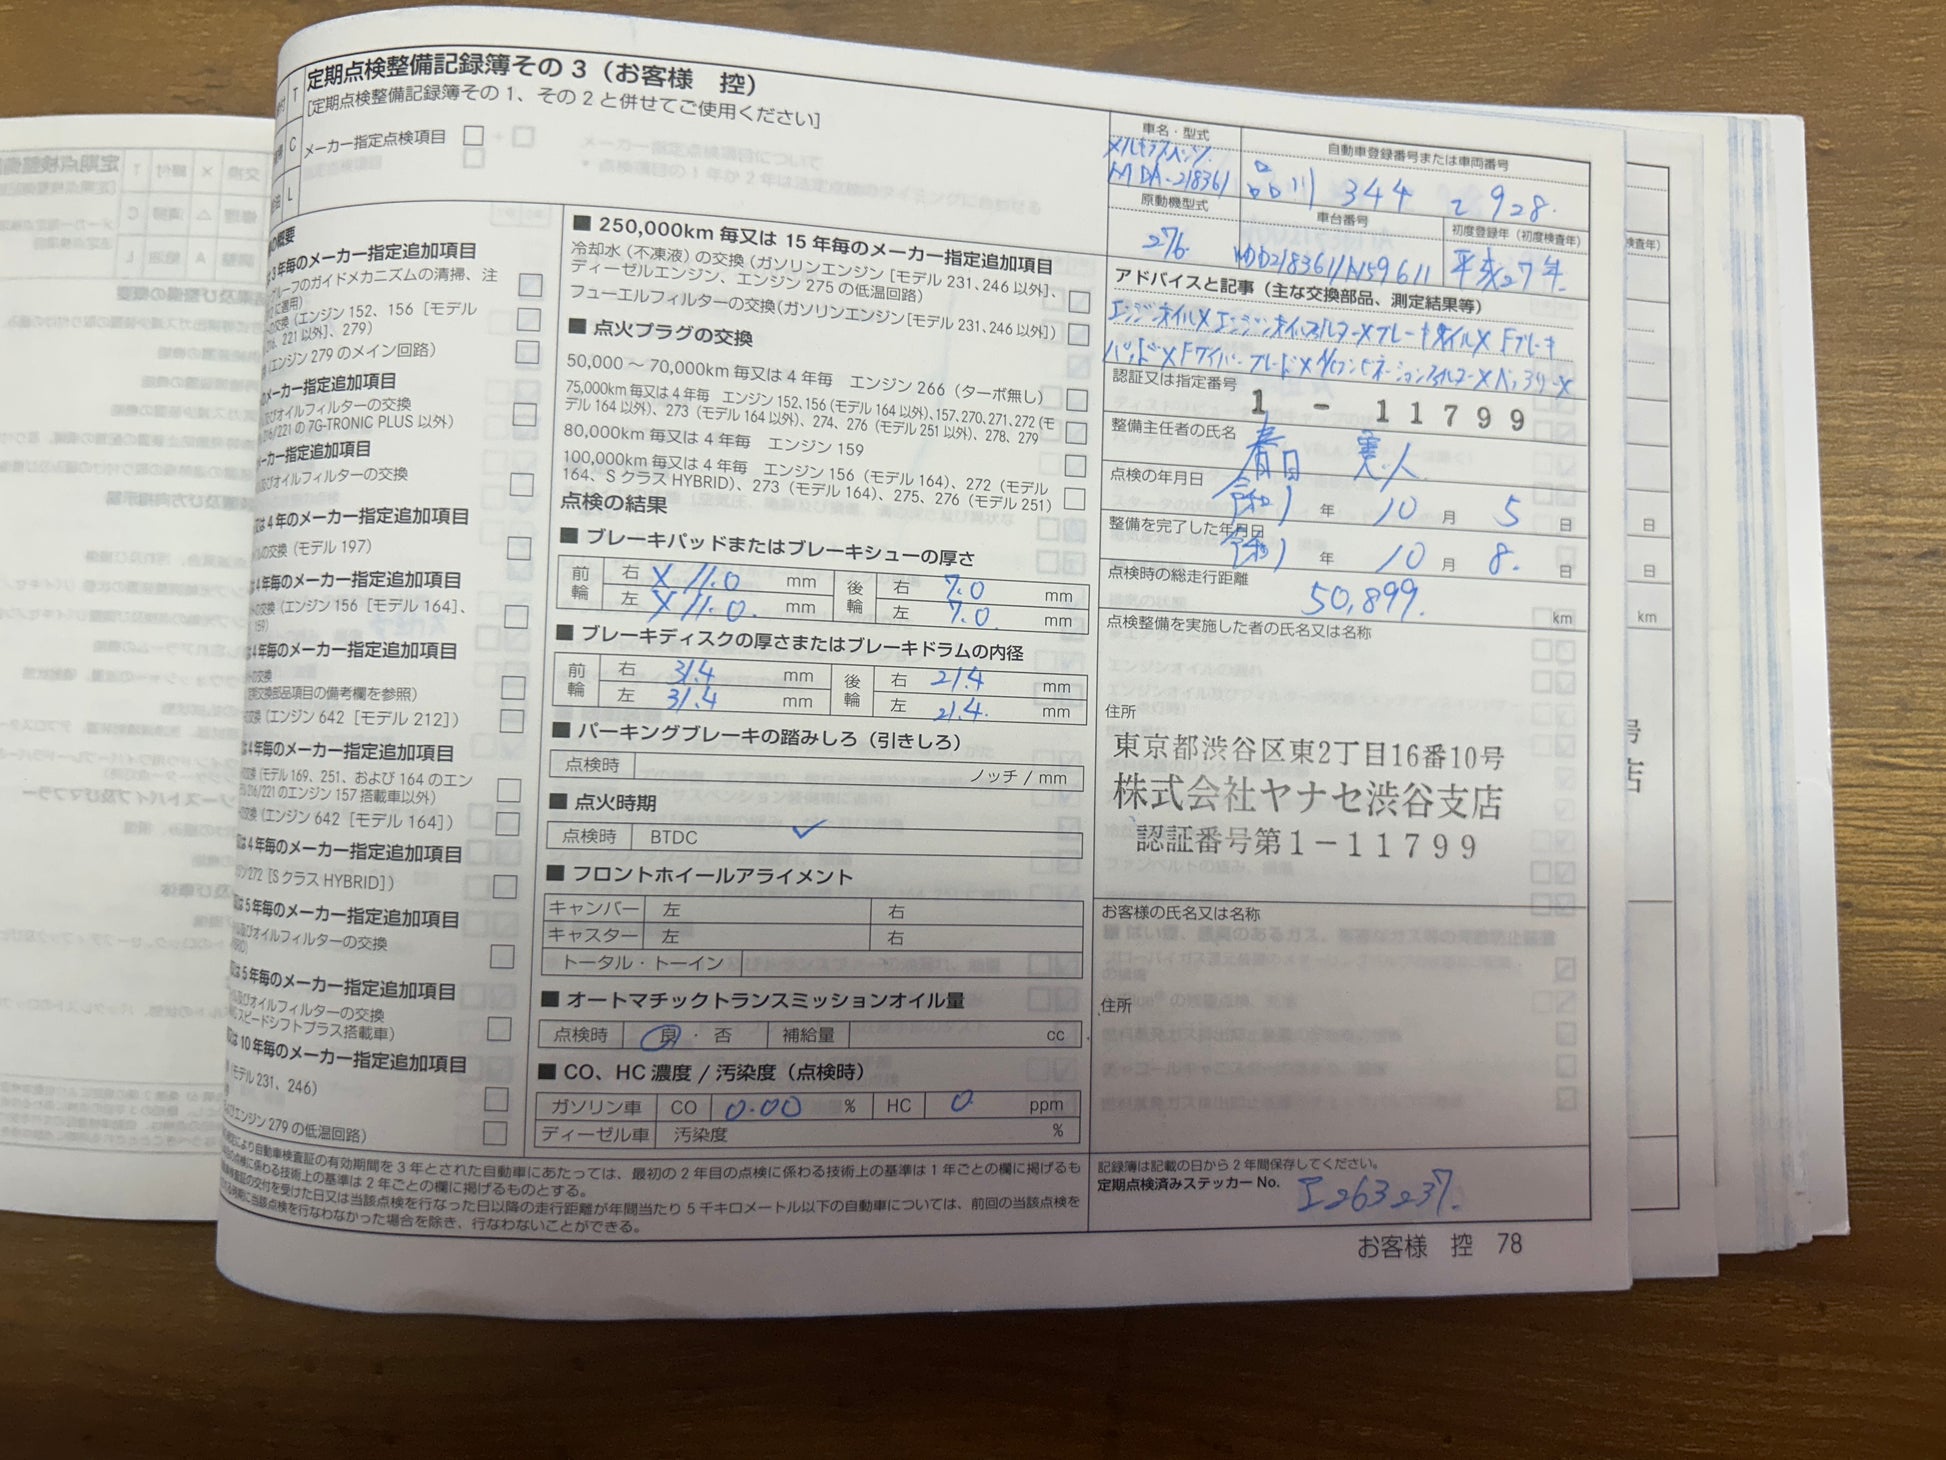 定期点検整備記録簿その3（お客様　控）
[定期点検整備記録簿その1、その2と併せてご使用ください]
T
C
L
メーカー指定点検項目
の概要
3年毎のメーカー指定追加項目
ルーフのガイドメカニズムの清掃、注
に適用）
の交換（エンジン152、156［モデル
216、221以外］、279）
（エンジン279のメイン回路）
のメーカー指定追加項目
及びオイルフィルターの交換
216/221の7G-TRONIC PLUS以外）
メーカー指定追加項目
及びオイルフィルターの交換
又は4年のメーカー指定追加項目
の交換（モデル197）
は4年毎のメーカー指定追加項目
の交換（エンジン156［モデル164］、
159）
は4年毎のメーカー指定追加項目
の交換
交換部品項目の備考欄を参照）
の交換（エンジン642［モデル212］）
は4年毎のメーカー指定追加項目
の交換（モデル169、251、および164のエン
216/221のエンジン157搭載車以外）
の交換（エンジン642［モデル164］）
は4年毎のメーカー指定追加項目
ジン272［SクラスHYBRID］）
は5年毎のメーカー指定追加項目
及びオイルフィルターの交換
は5年毎のメーカー指定追加項目
及びオイルフィルターの交換
スピードシフトプラス搭載車）
又は10年毎のメーカー指定追加項目
（モデル231、246）
びエンジン279の低温回路）
■ 250,000km毎又は15年毎のメーカー指定追加項目
冷却水（不凍液）の交換（ガソリンエンジン［モデル231、246以外］、
ディーゼルエンジン、エンジン275の低温回路）
フューエルフィルターの交換（ガソリンエンジン［モデル231、246以外］）
■ 点火プラグの交換
50,000～70,000km毎又は4年毎　エンジン266（ターボ無し）
75,000km毎又は4年毎　エンジン152、156（モデル164以外）、157、270、271、272（モ
デル164以外）、273（モデル164以外）、274、276（モデル251以外）、278、279
80,000km毎又は4年毎　エンジン159
100,000km毎又は4年毎　エンジン156（モデル164）、272（モデル
164、SクラスHYBRID）、273（モデル164）、275、276（モデル251）
点検の結果
■ ブレーキパッドまたはブレーキシューの厚さ
前輪 右 X 11.0 mm 後輪 右 7.0 mm
左 X 11.0 mm 左 7.0 mm
■ ブレーキディスクの厚さまたはブレーキドラムの内径
前輪 右 31.4 mm 後輪 右 21.4 mm
左 31.4 mm 左 21.4 mm
■ パーキングブレーキの踏みしろ（引きしろ）
点検時 ノッチ / mm
■ 点火時期
点検時 BTDC ✓
■ フロントホイールアライメント
キャンバー 左 右
キャスター 左 右
トータル・トーイン
■ オートマチックトランスミッションオイル量
点検時 良・否 補給量 cc
■ CO、HC濃度 / 汚染度（点検時）
ガソリン車 CO 0.00 % HC 0 ppm
ディーゼル車 汚染度 %
により自動車検査証の有効期間を3年とされた自動車にあたっては、最初の2年目の点検に係わる技術上の基準は1年ごとの欄に掲げるも
の点検に係わる技術上の基準は2年ごとの欄に掲げるものとする。
検査証の交付を受けた日又は当該点検を行なった日以降の走行距離が年間当たり5千キロメートル以下の自動車については、前回の当該点検を
る時期に当該点検を行なわなかった場合を除き、行なわないことができる。
車名・型式
メルセデスベンツ
MDA-218361
自動車登録番号または車両番号
品川 344 て 928
原動機型式
276
車台番号
WDD2183611A159611
初度登録年（初度検査年）
平成27年
アドバイスと記事（主な交換部品、測定結果等）
エンジンオイルX エンジンオイルフィルターX ブレーキオイルX Fブレーキ
パッドX Fワイパーブレードx A/Cコンビネーションフィルターx バッテリーx
認証又は指定番号
1－11799
整備主任者の氏名
春日
点検の年月日
令和1年10月5日
整備を完了した年月日
令和1年10月8日
点検時の総走行距離
50,899 km
点検整備を実施した者の氏名又は名称
住所
東京都渋谷区東2丁目16番10号
株式会社ヤナセ渋谷支店
認証番号第1－11799
お客様の氏名又は名称
住所
記録簿は記載の日から2年間保存してください。
定期点検済みステッカーNo.
I263237
お客様　控　78